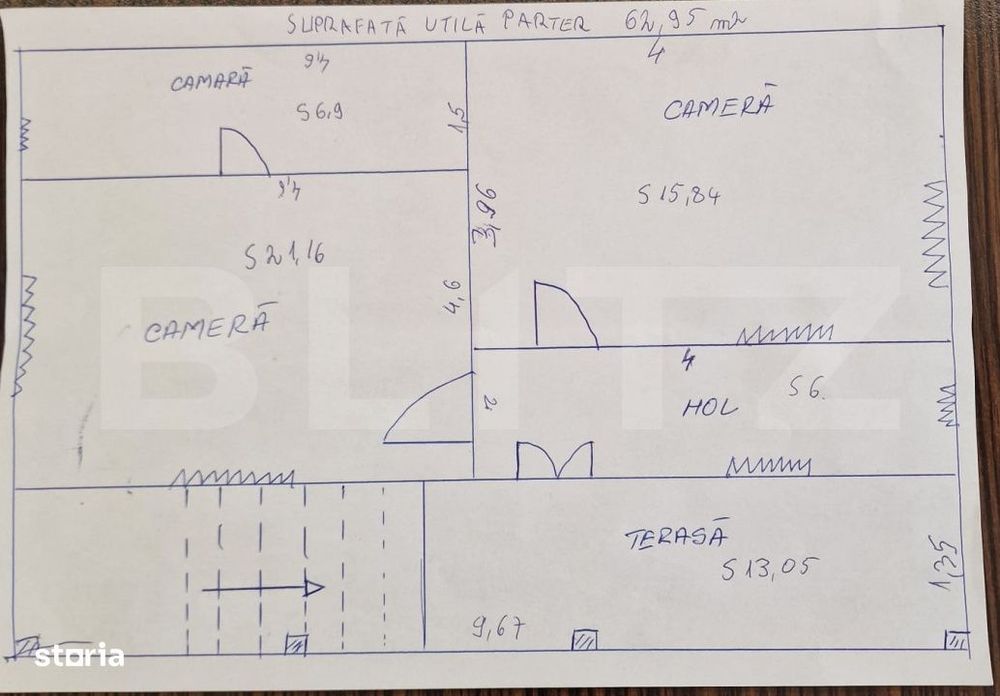 SUPRAFAȚĂ UTILĂ PARTER 62,95 m2
4,6
4
CAMARĂ
S 6,9
1,5
CAMERĂ
4,6
S 15,84
3,96
S 21,16
4,6
CAMERĂ
BLITZ
4
S 6.
2
HOL
TERASĂ
S 13,05
1,35
9,67
storia